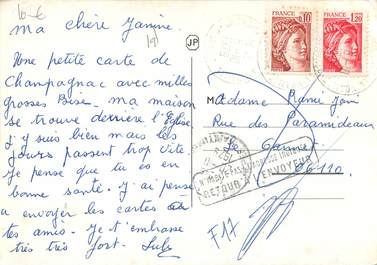 10-6
ma chère Janine.
19
JP
Une petite carte de
Champagnac avec milles
grosses Bises. ma maison
se trouve derrière l'Eglise
J'y suis bien mais les
jours passent trop vite.
Je pense que tu es en
bonne santé. J'ai pensé
a envoyer les cartes
tes amis. Je t'embrasse
très très fort.
FRANCE
0,10
FRANCE
1,20
Madame
Rue des
Le Cannet
06110
RETOUR
ENVOYEUR
F17